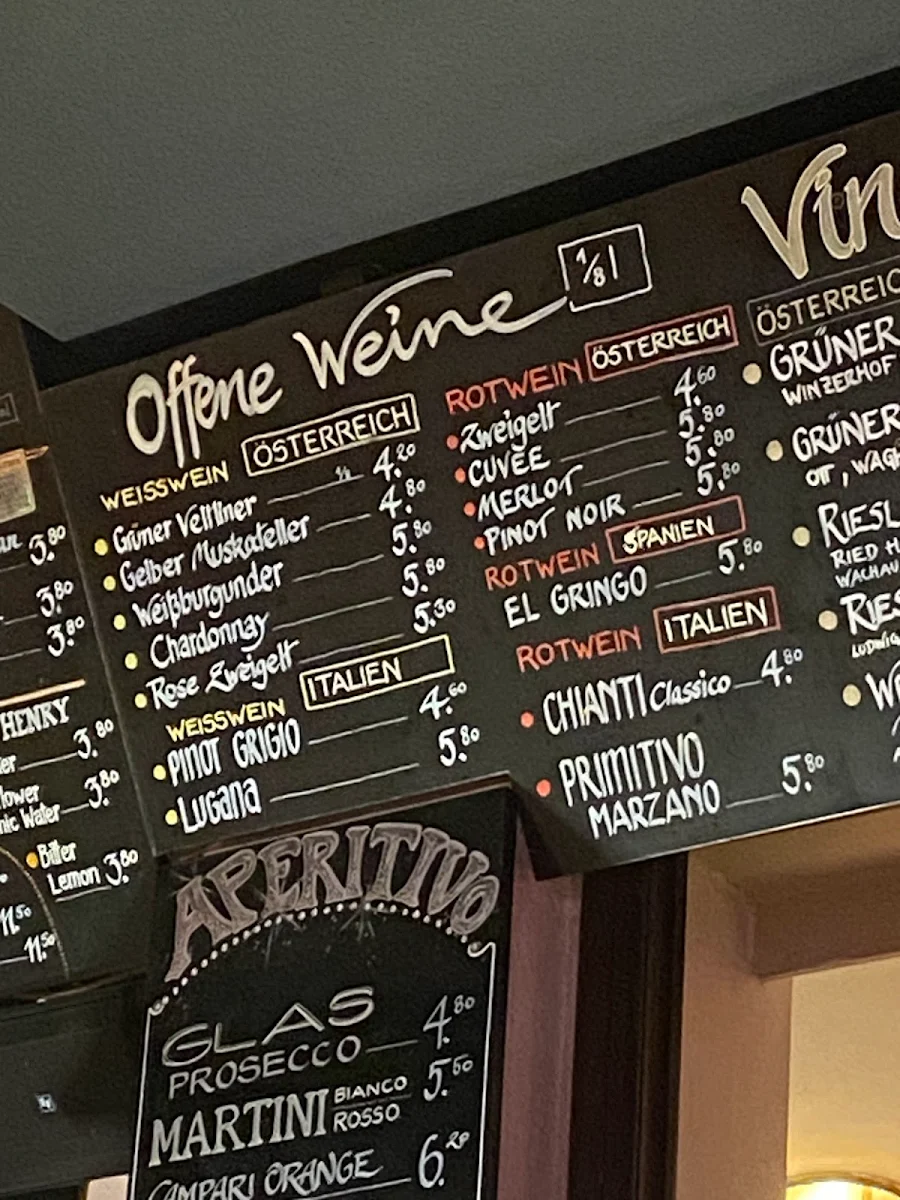 Offene Weine 1/8 l
WEISSWEIN ÖSTERREICH
Grüner Veltliner 4.20
Gelber Muskateller 4.80
Weißburgunder 5.80
Chardonnay 5.80
Rose Zweigelt 5.30
WEISSWEIN ITALIEN
PINOT GRIGIO 4.60
Lugana 5.80
ROTWEIN ÖSTERREICH
Zweigelt 4.60
CUVÉE 5.80
MERLOT 5.80
PINOT NOIR 5.80
ROTWEIN SPANIEN
EL GRINGO 5.80
ROTWEIN ITALIEN
CHIANTI Classico 4.80
PRIMITIVO
MARZANO 5.80
Vin
ÖSTERREIC
GRÜNER
WINZERHOF
GRÜNER
OTT, WAG
RIESL
RIED
WACHAU
RIES
LUDWIG
3.80
3.80
3.80
HENRY
er 3.80
lower
nic Water 3.80
Bitter
Lemon 3.80
11.50
11.50
APERITIVO
GLAS
PROSECCO 4.80
MARTINI BIANCO
ROSSO 5.50
CAMPARI ORANGE 6.20